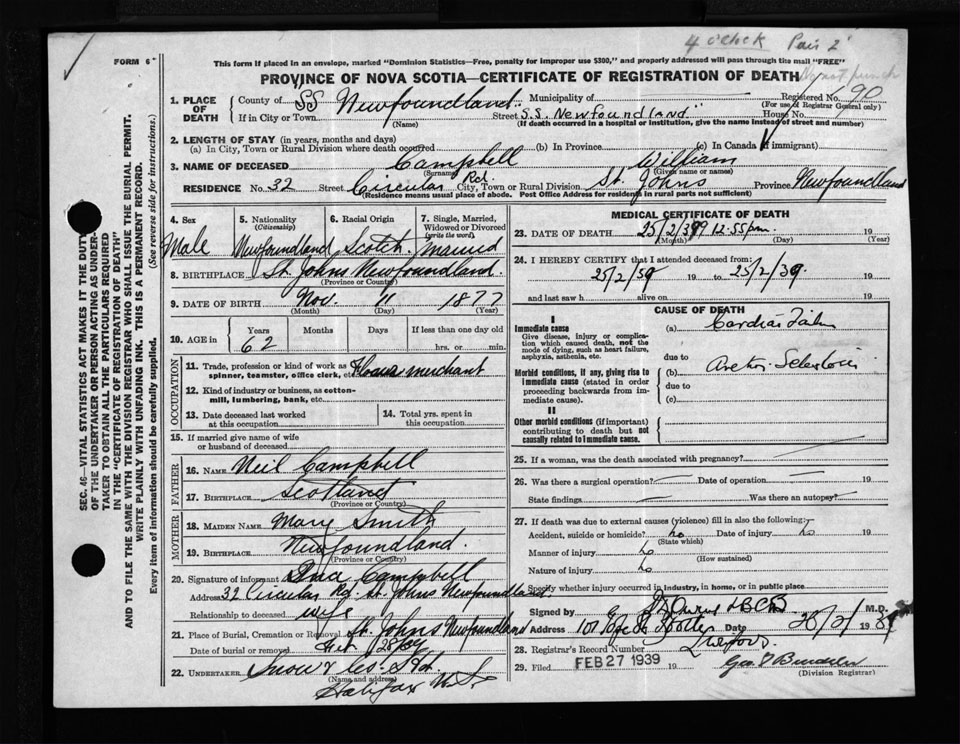 4 o'clock
FORM 6
This form if placed in an envelope, marked "Dominion Statistics—Free, penalty for improper use $300," and properly addressed will pass through the mail "FREE"
PROVINCE OF NOVA SCOTIA—CERTIFICATE OF REGISTRATION OF DEATH
SEC. 46—VITAL STATISTICS ACT MAKES IT THE DUTY
OF THE UNDERTAKER OR PERSON ACTING AS UNDER-
TAKER TO OBTAIN ALL THE PARTICULARS REQUIRED
IN THE "CERTIFICATE OF REGISTRATION OF DEATH"
AND TO FILE THE SAME WITH THE DIVISION REGISTRAR WHO SHALL ISSUE THE BURIAL PERMIT.
WRITE PLAINLY WITH UNFADING INK. THIS IS A PERMANENT RECORD.
Every item of information should be carefully supplied. (See reverse side for instructions.)
1. PLACE OF DEATH
County of SS Newfoundland Municipality of Registered No. 90
(For use of Registrar General only)
If in City or Town (Name) Street S.S. Newfoundland House No.
(If death occurred in a hospital or institution, give the name instead of street and number)
2. LENGTH OF STAY (in years, months and days)
(a) In City, Town or Rural Division where death occurred (b) In Province (c) In Canada (if immigrant)
3. NAME OF DECEASED Campbell William
(Surname) (Given name or names)
RESIDENCE No. 32 Street Circular Rd. City, Town or Rural Division St. Johns Province Newfoundland
(Residence means usual place of abode. Post Office Address for residents in rural parts not sufficient)
4. Sex Male
5. Nationality (Citizenship) Newfoundland
6. Racial Origin Scotch
7. Single, Married, Widowed or Divorced (write the word) Married
8. BIRTHPLACE St. Johns Newfoundland.
(Province or Country)
9. DATE OF BIRTH Nov. 4 1877
(Month) (Day) (Year)
10. AGE in Years Months Days If less than one day old
62 hrs. or min.
OCCUPATION
11. Trade, profession or kind of work as spinner, teamster, office clerk, etc. merchant
12. Kind of industry or business, as cotton-mill, lumbering, bank, etc.
13. Date deceased last worked at this occupation
14. Total yrs. spent in this occupation
15. If married give name of wife or husband of deceased
FATHER
16. NAME Neil Campbell
17. BIRTHPLACE Scotland
(Province or Country)
MOTHER
18. MAIDEN NAME Mary Smith
19. BIRTHPLACE Newfoundland.
(Province or Country)
20. Signature of informant Campbell
Address 32 Circular Rd. St. Johns Newfoundland
Relationship to deceased wife
21. Place of Burial, Cremation or Removal St. Johns Newfoundland
Date of burial or removal
22. UNDERTAKER Snow & Co. Ltd.
(Name and address)
Halifax N.S.
MEDICAL CERTIFICATE OF DEATH
23. DATE OF DEATH 25/2/39 12.55pm. 19
(Month) (Day) (Year)
24. I HEREBY CERTIFY that I attended deceased from:
25/2/39 19 to 25/2/39 19
and last saw h alive on 19
CAUSE OF DEATH
I
Immediate cause
Give disease, injury or complication which caused death, not the mode of dying, such as heart failure, asphyxia, asthenia, etc.
(a) Cardiac
due to
Morbid conditions, if any, giving rise to immediate cause (stated in order proceeding backwards from immediate cause).
(b)
due to
(c)
II
Other morbid conditions (if important) contributing to death but not causally related to immediate cause.
25. If a woman, was the death associated with pregnancy?
26. Was there a surgical operation? Date of operation 19
State findings Was there an autopsy?
27. If death was due to external causes (violence) fill in also the following:
Accident, suicide or homicide? no Date of injury no 19
(State which)
Manner of injury no
(How sustained)
Nature of injury no
Specify whether injury occurred in industry, in home, or in public place
Signed by M.D.
Address Date 28/2/ 19
28. Registrar's Record Number
29. Filed FEB 27 1939 19
(Division Registrar)